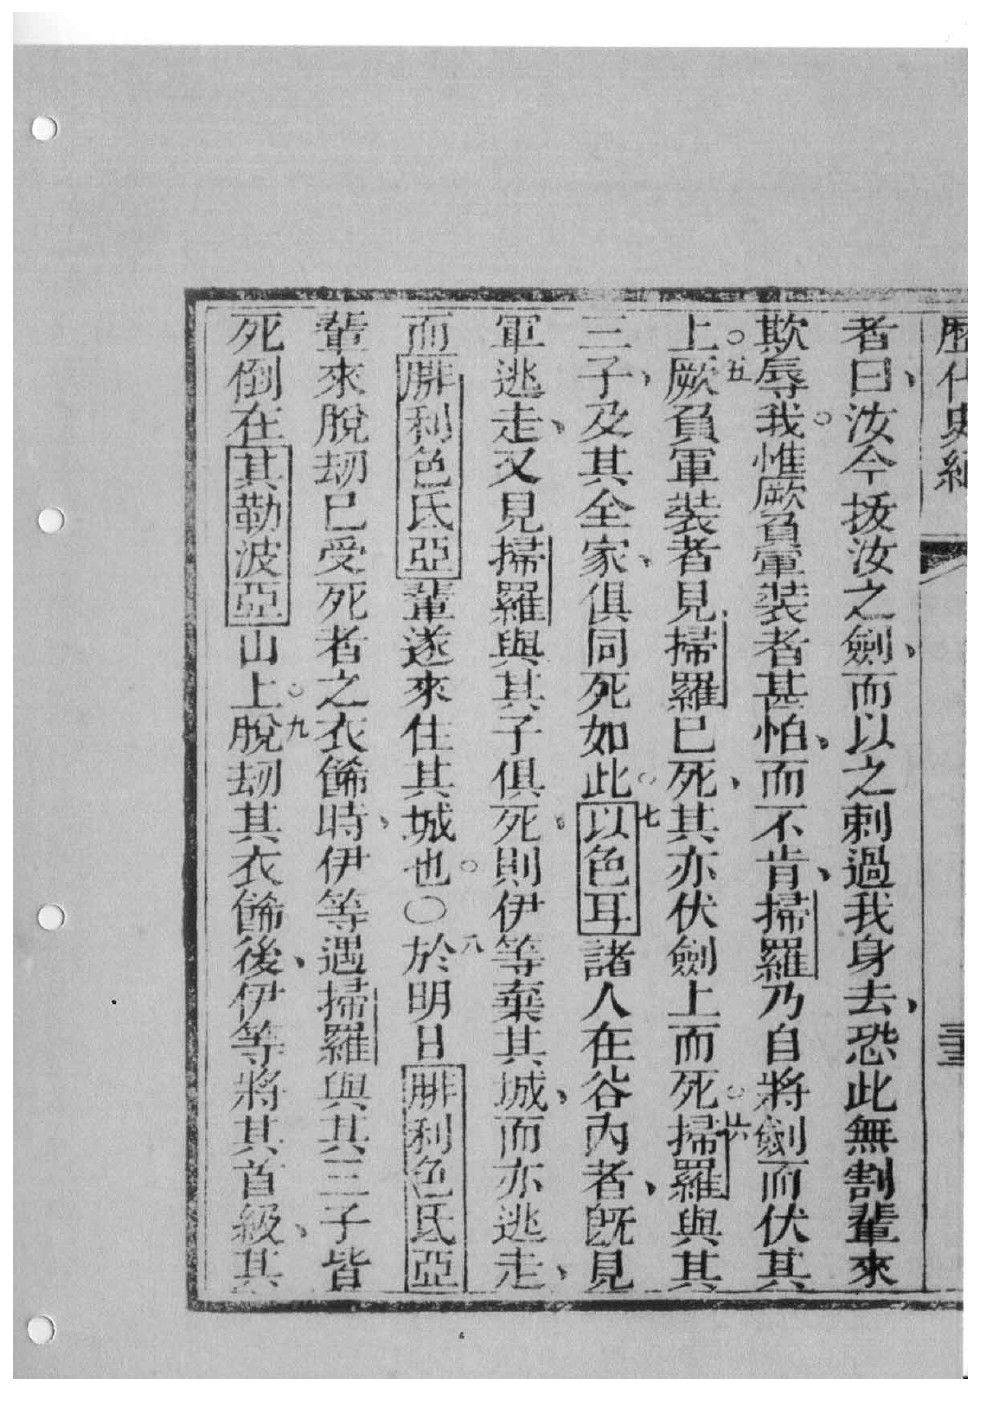 歷代史紀 三
者曰、汝今拔汝之劍、而以之刺過我身去、恐此無割輩來
欺辱我。惟厥負軍裝者甚怕、而不肯、掃羅乃自將劍而伏其
上。五厥負軍裝者見掃羅已死、其亦伏劍上而死。六掃羅與其
三子、及其全家、俱同死如此。七以色耳諸人在谷內者、旣見
軍逃走、又見掃羅與其子俱死、則伊等棄其城、而亦逃走、
而腓利色氏亞輩遂來住其城也。〇八於明日腓利色氏亞
輩來脫刼已受死者之衣餙時、伊等遇掃羅與其三子皆
死倒在其勒波亞山上。九脫刼其衣餙後、伊等將其首級、其